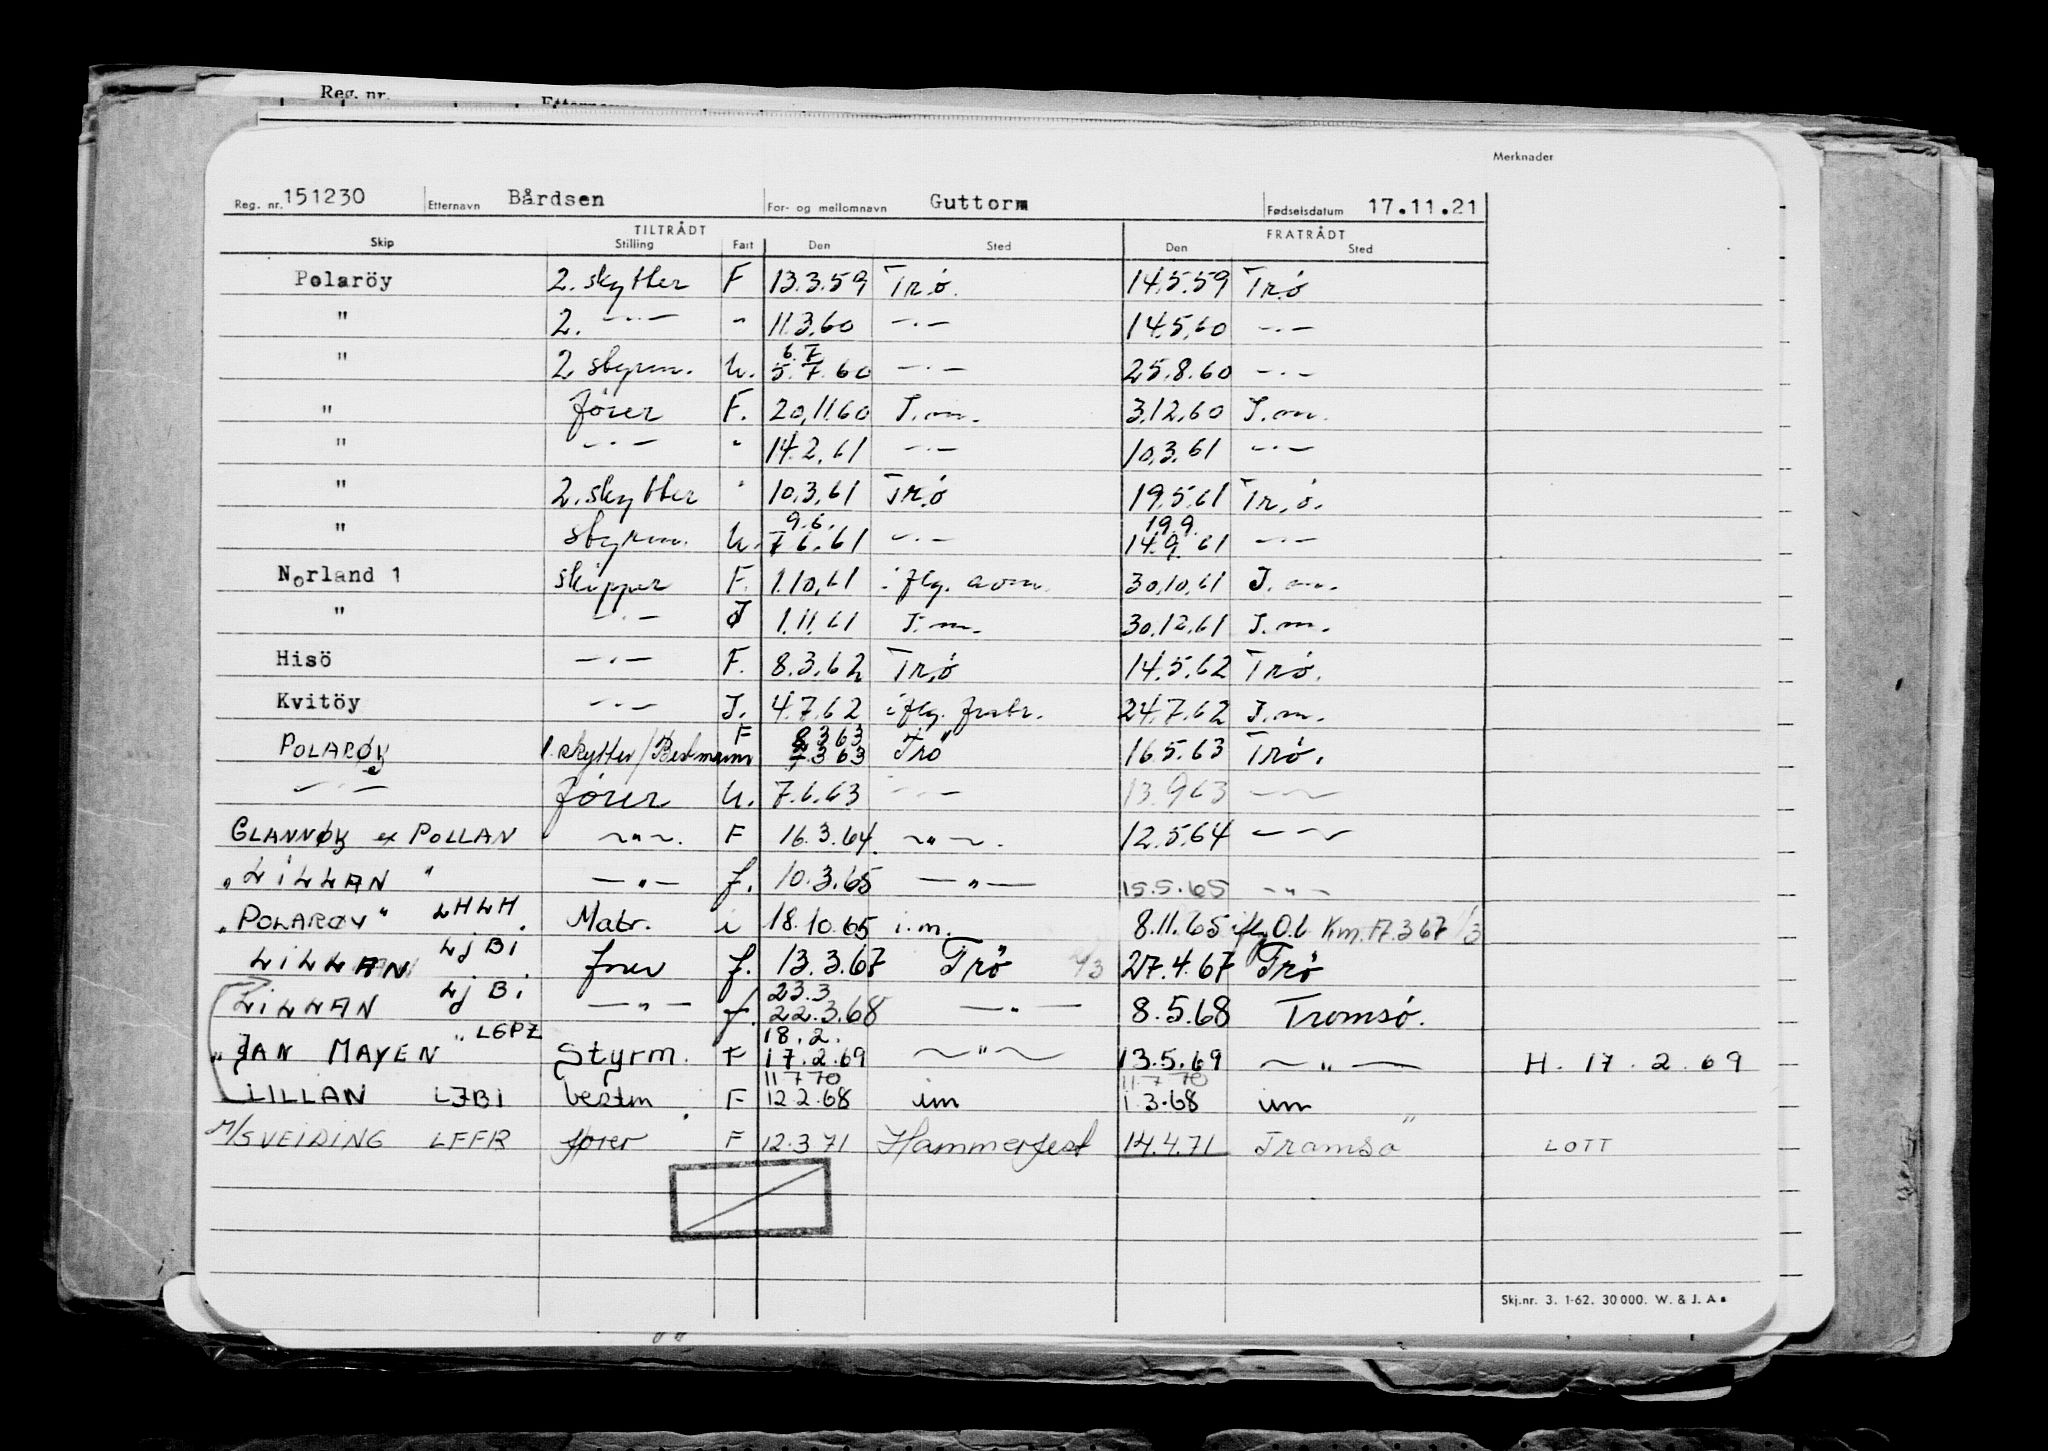 Reg. nr.
Merknader
Reg. nr. 151230 Etternavn Bårdsen For- og mellomnavn Guttorm Fødselsdatum 17.11.21
TILTRÅDT FRATRÅDT
Skip Stilling Fart Den Sted Den Sted
Polaröy 2. skytter F 13.3.59 Tr.ö. 14.5.59 Tr.ö
" 2. -"- " 11.3.60 -"- 14.5.60 -"-
6.7
" 2 styrm. U. 5.7.60 -"- 25.8.60 -"-
" fører F. 20.11.60 I.m. 3.12.60 I.m.
" -"- " 14.2.61 -"- 10.3.61 -"-
" 2. skytter " 10.3.61 Tr.ö 19.5.61 Tr.ö.
9.6. 19.9.
" styrm. U. 7.6.61 -"- 14.9.61 -"-
Norland 1 skipper F. 1.10.61 iflg. aom. 30.10.61 I.m.
" -"- I 1.11.61 I.m. 30.12.61 I.m.
Hisö -"- F. 8.3.62 Tr.ö 14.5.62 Trö.
Kvitöy -"- I. 4.7.62 iflg. 24.7.62 I.m.
F 8 3 63
POLARØY 1. skytter/Bestmann 7.3 63 Trö 16.5.63 Trö.
-"- fører U. 7.6.63 -"- 13.9.63 -"-
GLANNØY ex POLLAN -"-. F 16.3.64. -"-. 12.5.64 -"-
"LILLAN" -"- f. 10.3.65 -"- 15.5.65 -"-
"POLARØY" LHLH. Matr. i 18.10.65 i.m. 8.11.65 iflg O.b Km. 17.3 67 1/3
LILLAN LJBI fører f. 13.3.67 Trö /3 27.4.67 Trö
23.3
LILLAN LJBI -"- f. 22.3.68 -"- 8.5.68 Tromsø.
18.2.
"JAN MAYEN" LGPZ Styrm. F 17.2.69 -"- 13.5.69 -"- H. 17.2.69
11 7 70 11.7 70
LILLAN LJBI bestm. F 12 2.68 im 1.3.68 im
M/S VEIDING LFFR fører F 12.3 71 Hammerfest 14.4.71 Tromsö LOTT
Skj.nr. 3. 1-62. 30 000. W. & J. A.